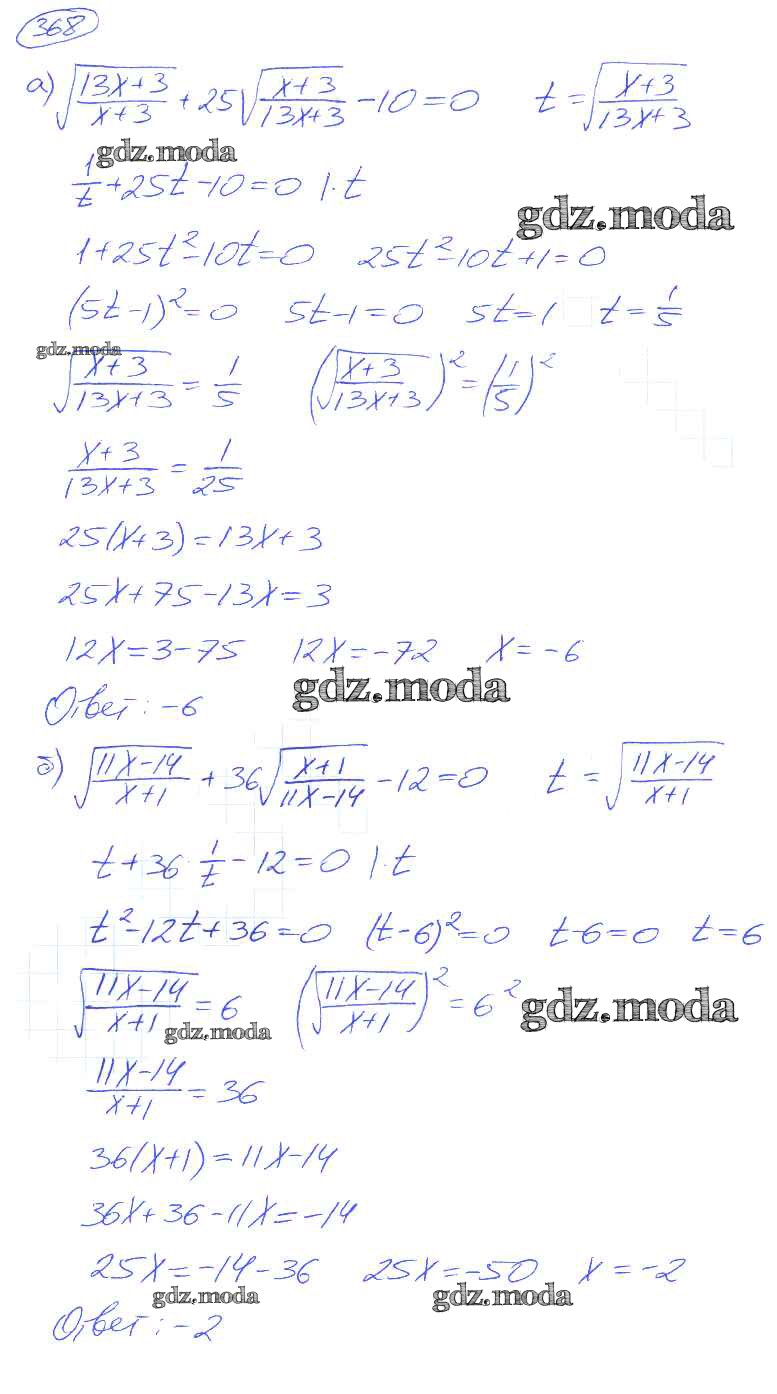 368
а) √((13x+3)/(x+3)) + 25√((x+3)/(13x+3)) - 10 = 0   t = √((x+3)/(13x+3))
gdz.moda
1/t + 25t - 10 = 0 | · t
gdz.moda
1 + 25t² - 10t = 0   25t² - 10t + 1 = 0
(5t - 1)² = 0   5t - 1 = 0   5t = 1   t = 1/5
gdz.moda
√((x+3)/(13x+3)) = 1/5   (√((x+3)/(13x+3)))² = (1/5)²
(x+3)/(13x+3) = 1/25
25(x+3) = 13x + 3
25x + 75 - 13x = 3
12x = 3 - 75   12x = -72   x = -6
gdz.moda
Ответ: -6
б) √((11x-14)/(x+1)) + 36√((x+1)/(11x-14)) - 12 = 0   t = √((11x-14)/(x+1))
t + 36 · 1/t - 12 = 0 | · t
t² - 12t + 36 = 0   (t - 6)² = 0   t - 6 = 0   t = 6
√((11x-14)/(x+1)) = 6   (√((11x-14)/(x+1)))² = 6²
gdz.moda
gdz.moda
(11x-14)/(x+1) = 36
36(x+1) = 11x - 14
36x + 36 - 11x = -14
25x = -14 - 36   25x = -50   x = -2
gdz.moda
gdz.moda
Ответ: -2